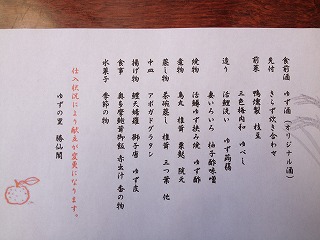 食前酒　ゆず酒（オリジナル酒）
先付　きらず炊き合わせ
前菜　鴨燻製　枝豆
三色梅肉和　ゆべし
造り　活鯉洗い　ゆず蒟蒻
妻いろいろ　柚子酢味噌
焼物　活鱒ゆず挟み焼　ゆず酢
煮物　鳥丸　椎茸　粟麩　隠元
蒸し物　茶碗蒸し　椎茸　三つ葉　他
中皿　アボガドグラタン
揚げ物　鯉天婦羅　獅子唐　ゆず皮
食事　奥多摩鮑茸御飯　赤出汁　香の物
水菓子　季節の物
仕入状況により献立が変更になります。
ゆずの里　勝仙閣